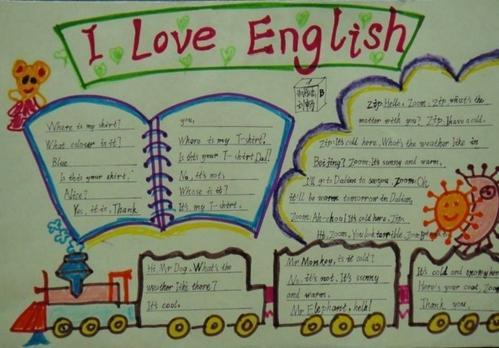 I Love English
Where is my shirt?
What coloser is it?
Blue
Is this your shirt,
Alice?
Yes, it is, Thank
you,
Where is my T-shirt?
Is this your T-shirt Dad!
No, it's not,
Whose is it?
It's my T-shirt.
B
Zip:Hello, Zoom. Zip what's the
matter with you? Zip. I have cold.
Zip: It's cold here. What's the weather like in
Beijing? Zoom: It's sunny and warm.
I'll go to Dalian to Zoom: Oh
it'll be warm tomorrow in Dalian,
Zoom: Ah-choo! It's cold here, Zip:
Hi, Zoom. You look terrible. Zoom
Hi, Mr Dog, What's the
weather like there?
It's cool.
Mr Monkey, is it cold?
No, it's not. It's sunny
and warm.
Mr Elephant, hello!
It's cold and snowy here
Here's your coat, Zoom
Thank you,